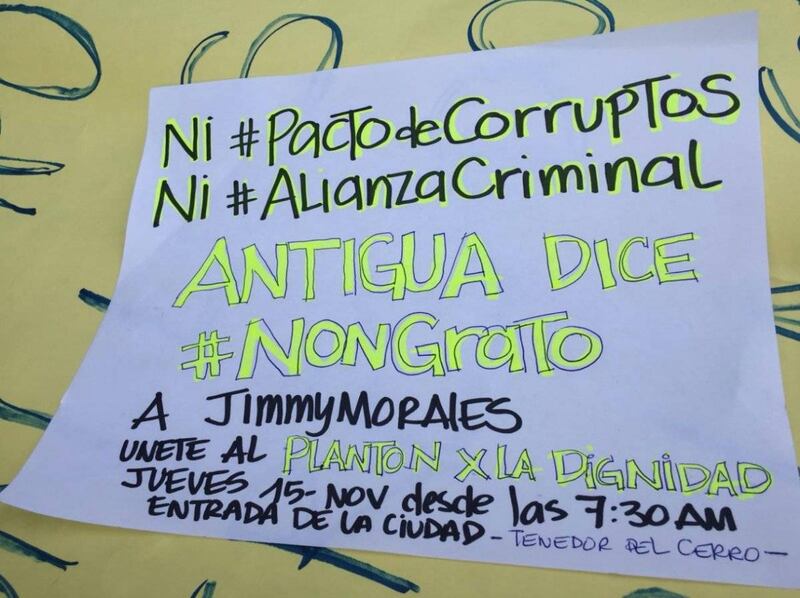 Ni #PactodeCorruptos
Ni #AlianzaCriminal
ANTIGUA DICE
#NonGrato
A JimmyMORALES
UNETE AL PLANTON X LA DIGNIDAD
JUEVES 15-NOV desde las 7:30 AM
ENTRADA DE LA CIUDAD - TENEDOR DEL CERRO -